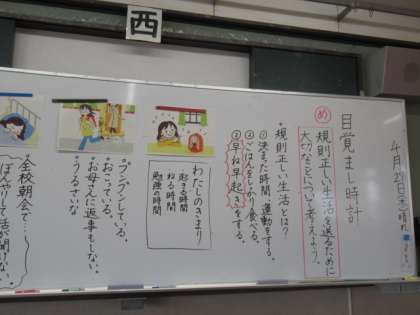 西
4月21日(木)晴れ
目覚まし時計
め
規則正しい生活を送るために
大切なことについて考えよう。
・規則正しい生活とは?
①決まった時間、運動をする。
②ごはんをしっかり食べる。
③早ね早起きをする。
わたしのきまり
起きる時間
ねる時間
勉強の時間
・プンプンしている。
・おこっている。
・お母さんに返事もしない。
・うるさいな
・全校朝会で…
ぼんやりして話が聞けない。